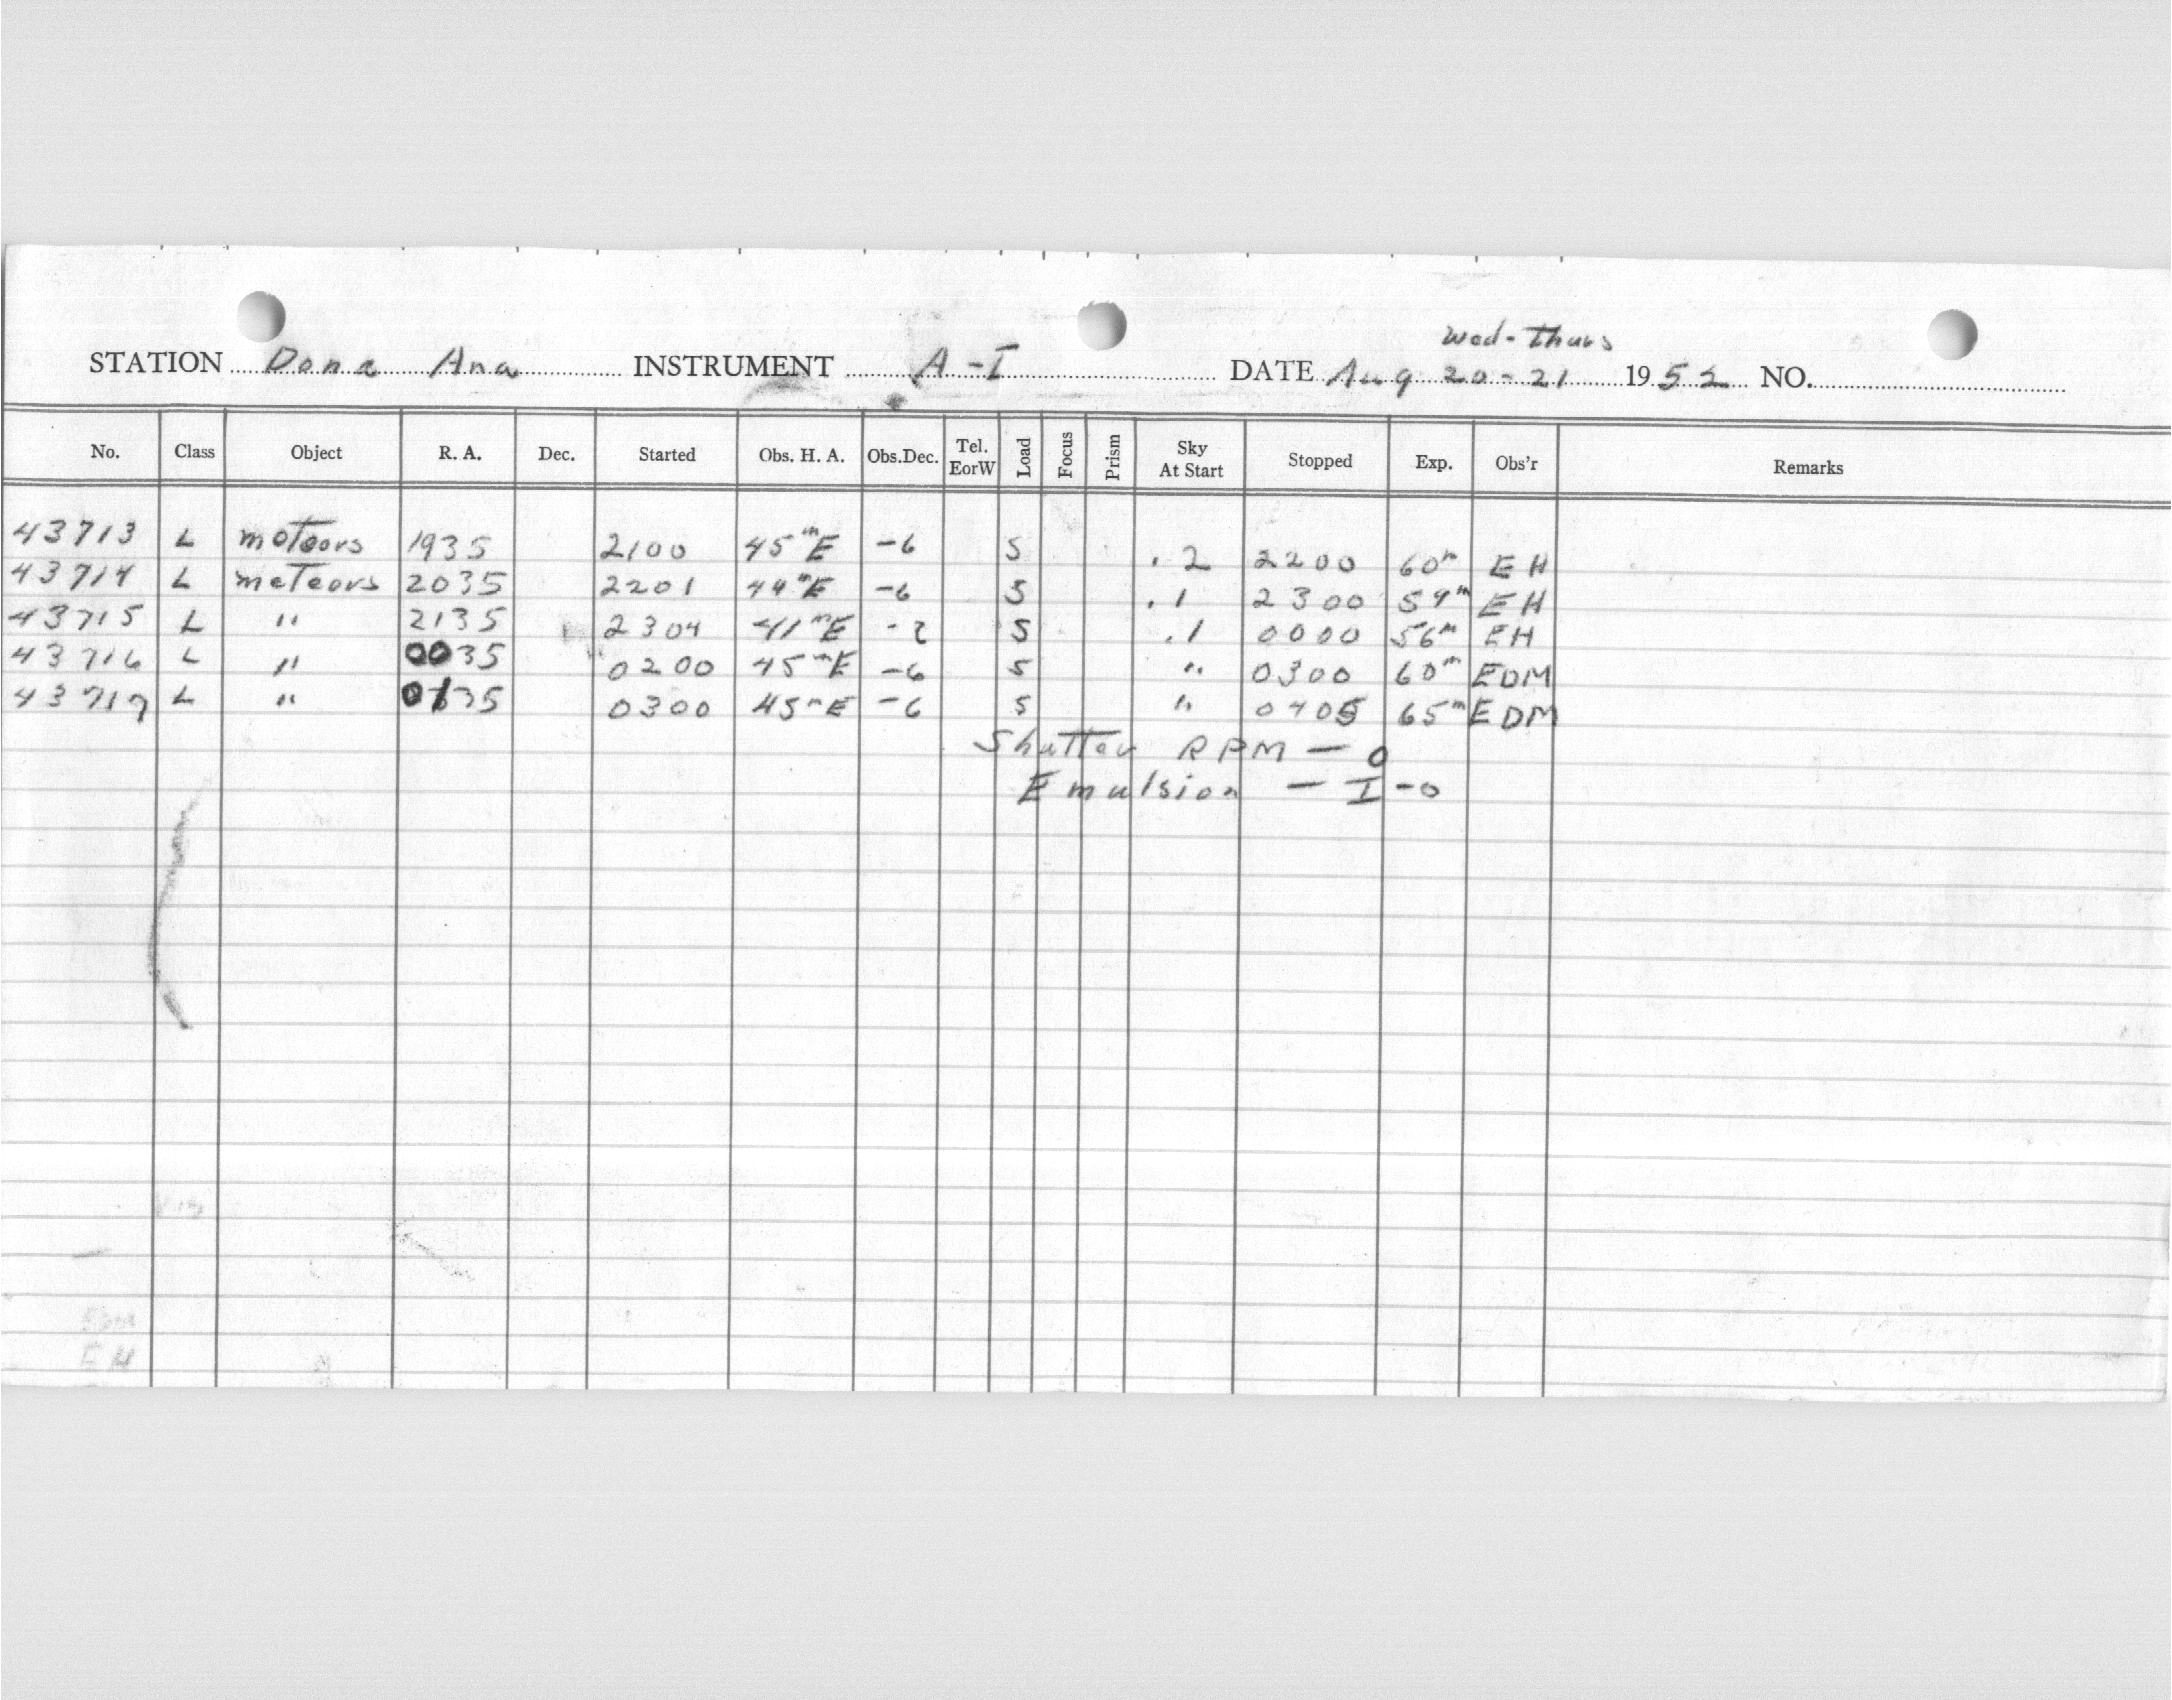 Wed-Thurs
STATION Dona Ana INSTRUMENT A-I DATE Aug 20-21 1952 NO.
No. Class Object R. A. Dec. Started Obs. H. A. Obs.Dec. Tel. EorW Load Focus Prism Sky At Start Stopped Exp. Obs'r Remarks
43713 L meteors 1935 2100 45ᵐE -6 S .2 2200 60ᵐ EH
43714 L meteors 2035 2201 44ᵐE -6 S .1 2300 59ᵐ EH
43715 L " 2135 2304 41ᵐE S .1 0000 56ᵐ EH
43716 L " 0035 0200 45ᵐE -6 S " 0300 60ᵐ EDM
43717 L " 0135 0300 45ᵐE -6 S " 0405 65ᵐ EDM
Shutter RPM — 0
Emulsion — I-0
EH